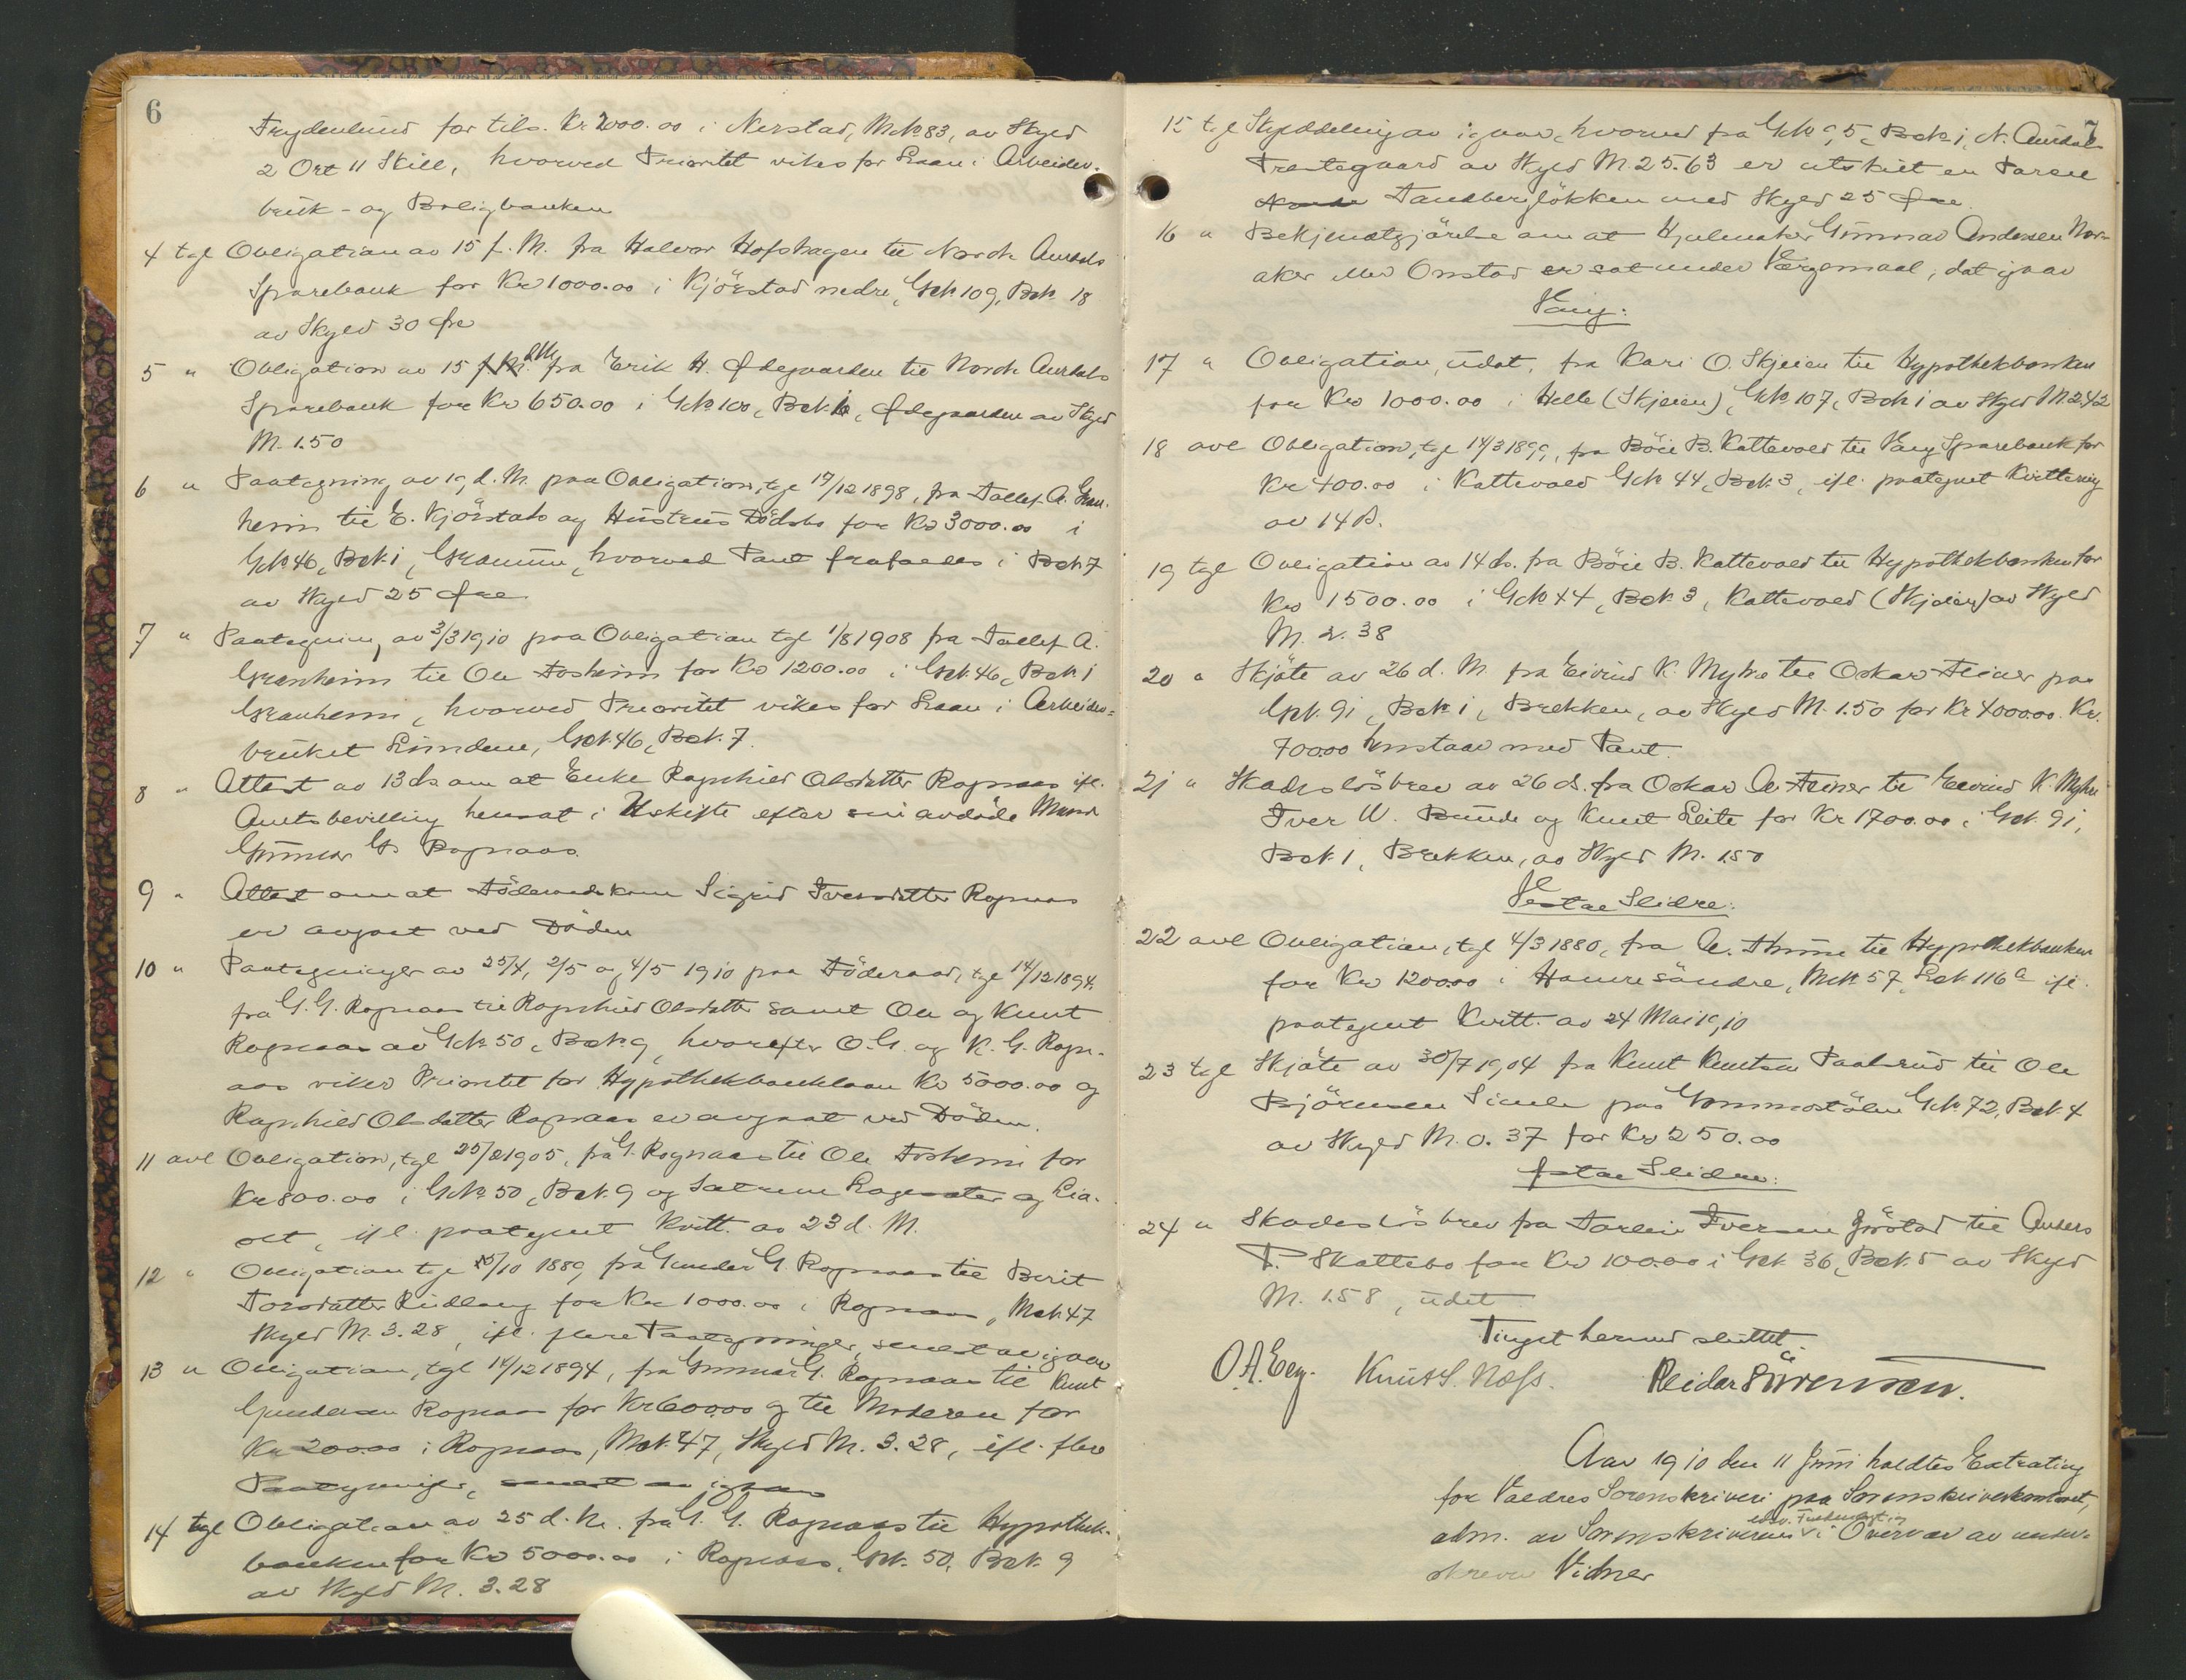 6
Frydenlund for tils. Kr 2000.00 i Nerstad, Mck 83, av Skyld
2 Ort 11 Skill, hvorved Prioritet vikes for Laan i Arbeider-
bruk- og Boligbanken
4 tgl Obligation av 15 f. M. fra Halvor Hofshagen til Nordr. Aurdals
Sparebank for Kr 1000.00 i Kjörstad nedre, Gck 109, Bck 18
av Skyld 30 Øre
5 " Obligation av 15 f. M. d M fra Erik H. Ødegaarden til Nordr. Aurdals
Sparebank for Kr 650.00 i Gck 100, Bck. 6, Ødegaarden av Skyld
M. 1.50
6 " Paategning av 19 d. M. paa Obligation, tgl 19/12 1898, fra Tollef A. Gran-
heim til E. Kjörstads og Hustrus Dödsbo for Kr 3000.00 i
Gck 46, Bck 1, Granum, hvorved Pant frafaldes i Bck 7
av Skyld 25 Øre
7 " Paategning av 3/3 1910 paa Obligation tgl 1/8 1908 fra Tollef A.
Granheim til Ole Fosheim for Kr 1200.00 i Gck. 46, Bck 1
Granheim, hvorved Prioritet vikes for Laan i Arbeider-
bruket Lundene, Gck 46, Bck. 7.
8 " Attest av 13 ds om at Enke Ragnhild Olsdatter Rognaas ifl.
Amtsbevilling hensat i Uskifte efter sin avdöde Mand
Gunnar G. Rognaas.
9 " Attest om at Föderaadskone Sigrid Iversdatter Rognaas
er avgaat ved Döden
10 " Paategninger av 25/4, 2/5 og 4/5 1910 paa Föderaad, tgl 14/12 1894
fra G. G. Rognaas til Ragnhild Olsdatter samt Ole og Knut
Rognaas av Gck 50, Bck. 9, hvorefter O. G. og K. G. Rogn-
aas viker Prioritet for Hypothekbanklaan Kr 5000.00 og
Ragnhild Olsdatter Rognaas er avgaat ved Döden.
11 avl Obligation, tgl 25/8 1905, fra G. Rognaas til Ole Fosheim for
Kr 800.00 i Gck 50, Bck. 9 og Sætrene og Lia-
set, ifl. paategnet Kvitt. av 23 d. M.
12 " Obligation tgl 15/10 1889 fra Gunder G. Rognaas til Berit
Torsdatter Ridlang for Kr 1000.00 i Rognaas, Mck. 47
Skyld M. 3.28, ifl. flere Paategninger, senest av igaar
13 " Obligation, tgl 14/12 1894, fra Gunnar G. Rognaas til Knut
Gundersen Rognaas for Kr 600.00 og til Moderen for
Kr 200.00 i Rognaas, Mck. 47, Skyld M. 3.28, ifl. flere
Paategninger, senest av igaar
14 tgl Obligation av 25 d. M. fra G. G. Rognaas til Hypothek-
banken for Kr 5000.00 i Rognaas, Gck. 50, Bck. 9
av Skyld M. 3.28
7
15 tgl Skylddeling av igaar, hvorved fra Gck 95, Bck 1, N. Aurdals
Prestegaard av Skyld M. 25.63 er utskilt en Parcel
Tandbergløkken med Skyld 25 Øre
16 " Bekjendtgjörelse om at Hjulmaker Gunnar Andersen Nor-
aker eller Onstad er sat under Værgemaal, dat igaar
Vang:
17 " Obligation, udat, fra Kari O. Skjeien til Hypothekbanken
for Kr 1000.00 i Helle (Skjeien), Gck 107, Bck 1 av Skyld M 2.42
18 avl Obligation, tgl 14/3 1899, fra Böie B. Kattevold til Vang Sparebank for
Kr 400.00 i Kattevold Gck 44, Bck. 3, ifl. paategnet Kvittering
av 14 ds.
19 tgl Obligation av 14 ds. fra Böie B. Kattevold til Hypothekbanken for
Kr 1500.00 i Gck 44, Bck. 3, Kattevold (Skjeien) av Skyld
M. 2.38
20 " Skjöte av 26 d. M. fra Eivind K. Myhre til Oskar Feiner paa
Gck. 91, Bck 1, Brekken, av Skyld M. 1.50 for Kr 4000.00. Kr.
700.00 henstaar med Pant.
21 " Skadeslösbrev av 26 ds. fra Oskar A. Feiner til Eivind K. Myhre
Iver W. Bunde og Knut Leite for Kr 1700.00 i Gck. 91,
Bck. 1, Brekken, av Skyld M. 1.50
Vestre Slidre:
22 avl Obligation, tgl 4/3 1880, fra A. Thune til Hypothekbanken
for Kr 1200.00 i Hamre söndre, Mck 57, Lck 116a ifl.
paategnet Kvitt. av 24 Mai 1910
23 tgl Skjöte av 30/7 1904 fra Knut Knutsen Paalsrud til Ole
Björnsen Simle paa Gommostölen Gck 72, Bck. 4
av Skyld M. 0.37 for Kr 250.00
Østre Slidre:
24 " Skadeslösbrev fra Torlein Iversen til Anders
T. Skattebo for Kr 1000.00 i Gck 36, Bck. 5 av Skyld
M. 1.58, udat
Tinget hermed sluttet.
O. A. Knut S. Næss. Reidar Sörensen.
Aar 1910 den 11 Juni holdtes Extrating
for Valdres Sorenskriveri paa Sorenskriverkontoret,
adm. av Sorenskriveren i Overvær av under-
skrevne Vidner